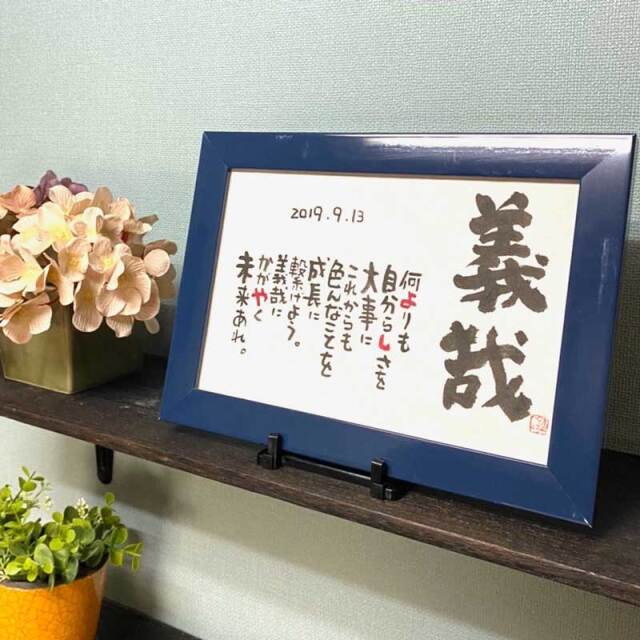 義哉
何よりも
自からしさを
大事に
これからも
色んなことを
成長に
繋げよう。
義哉に
かがやく
未来あれ。
2019.9.13